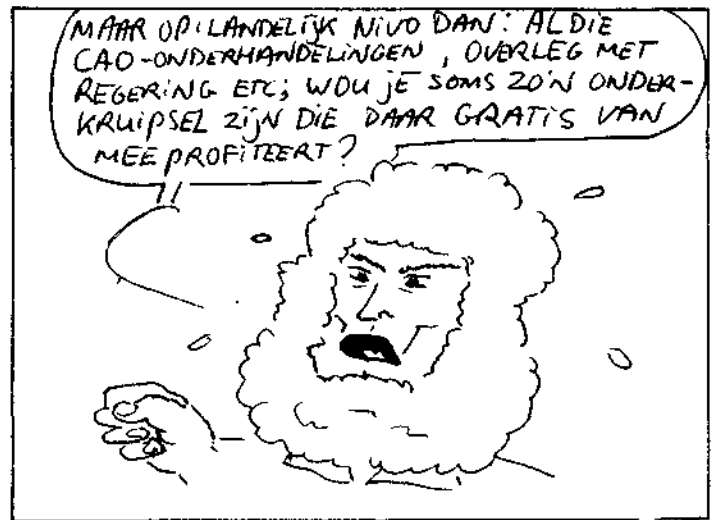 MAAR OP LANDELIJK NIVO DAN: AL DIE
CAO-ONDERHANDELINGEN, OVERLEG MET
REGERING ETC; WOU JE SOMS ZO'N ONDER-
KRUIPSEL ZIJN DIE DAAR GRATIS VAN
MEEPROFITEERT?